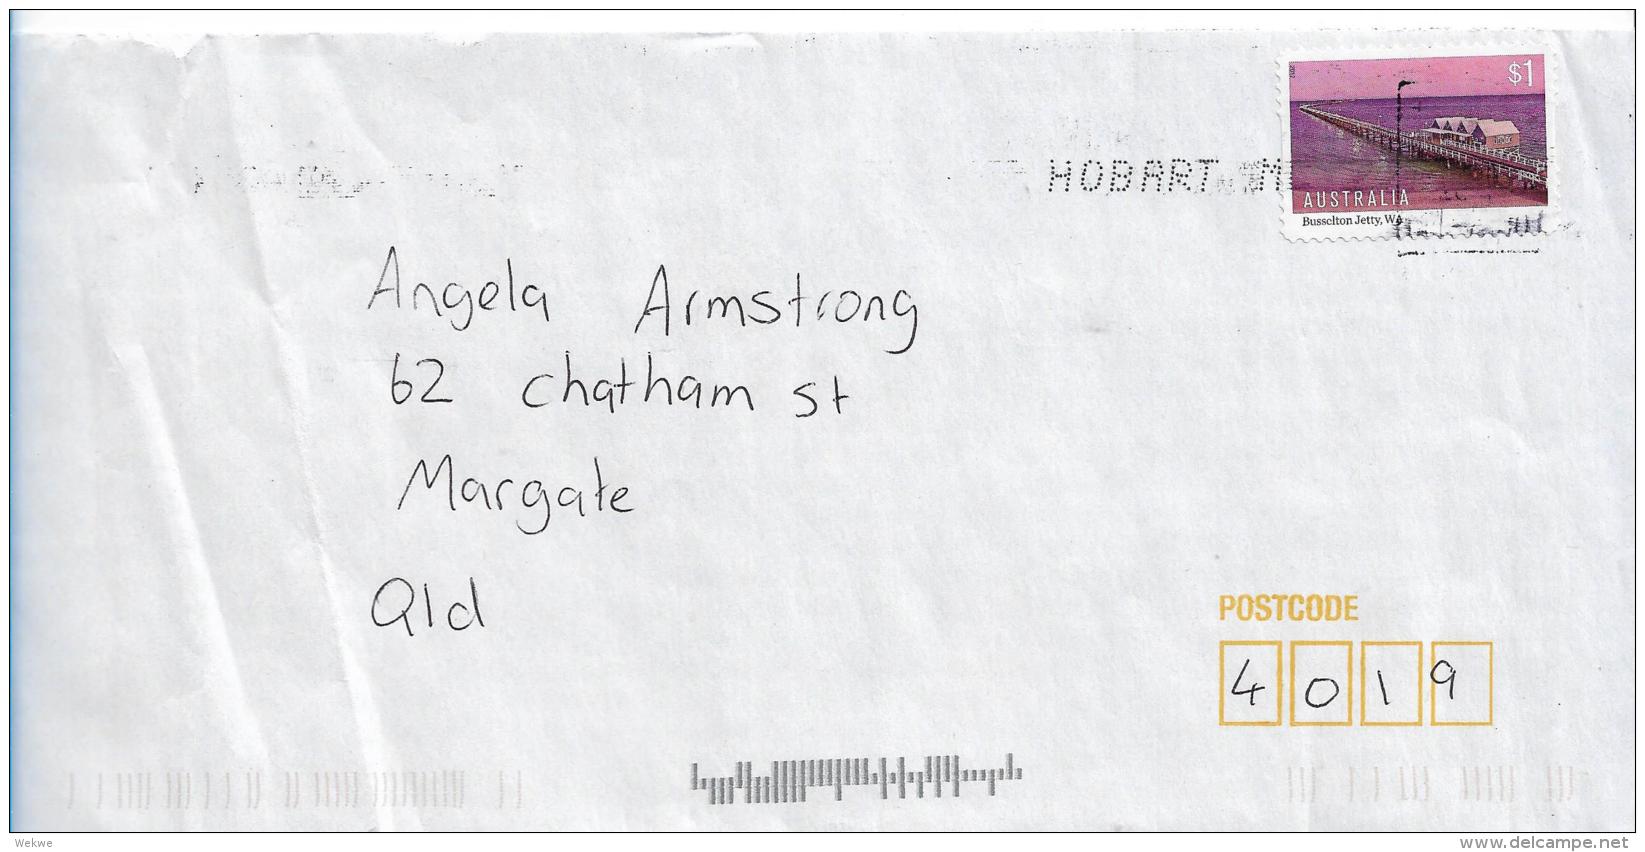 2012
$1
HOBART M
AUSTRALIA
Busselton Jetty, WA
Angela Armstrong
62 Chatham St
Margate
Qld
POSTCODE
4019
Wekwe
www.delcampe.net